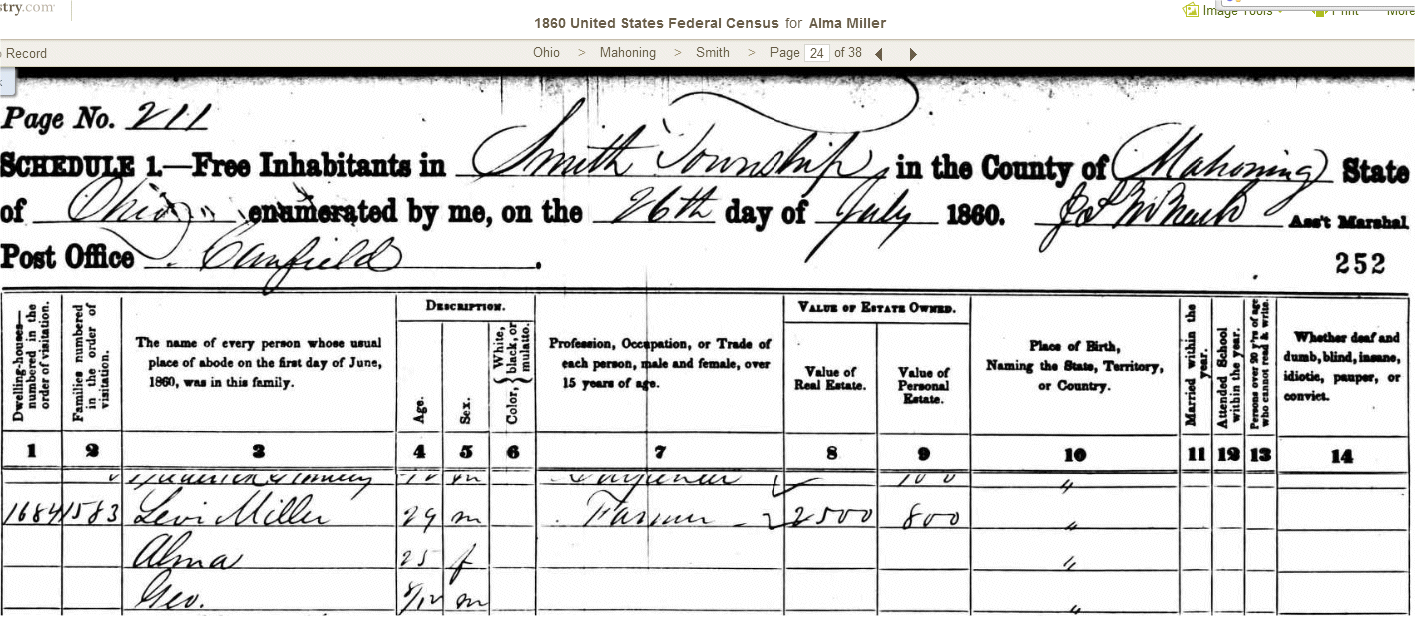 stry.com
Image Tools Print More
1860 United States Federal Census for Alma Miller
Record Ohio > Mahoning > Smith > Page 24 of 38
Page No. 211
SCHEDULE 1.—Free Inhabitants in Smith Township, in the County of Mahoning State
of Ohio enumerated by me, on the 26th day of July 1860. Ass't Marshal
Post Office Canfield.
252
Dwelling-houses—numbered in the order of visitation.
Families numbered in the order of visitation.
The name of every person whose usual place of abode on the first day of June, 1860, was in this family.
DESCRIPTION.
Age.
Sex.
Color, { White, black, or mulatto.
Profession, Occupation, or Trade of each person, male and female, over 15 years of age.
VALUE OF ESTATE OWNED.
Value of Real Estate.
Value of Personal Estate.
Place of Birth, Naming the State, Territory, or Country.
Married within the year.
Attended School within the year.
Persons over 20 y'rs of age who cannot read & write.
Whether deaf and dumb, blind, insane, idiotic, pauper, or convict.
1 2 3 4 5 6 7 8 9 10 11 12 13 14
100 "
1684 1583 Levi Miller 29 m Farmer 2500 800 "
Alma 25 f "
Geo. 8/12 m "